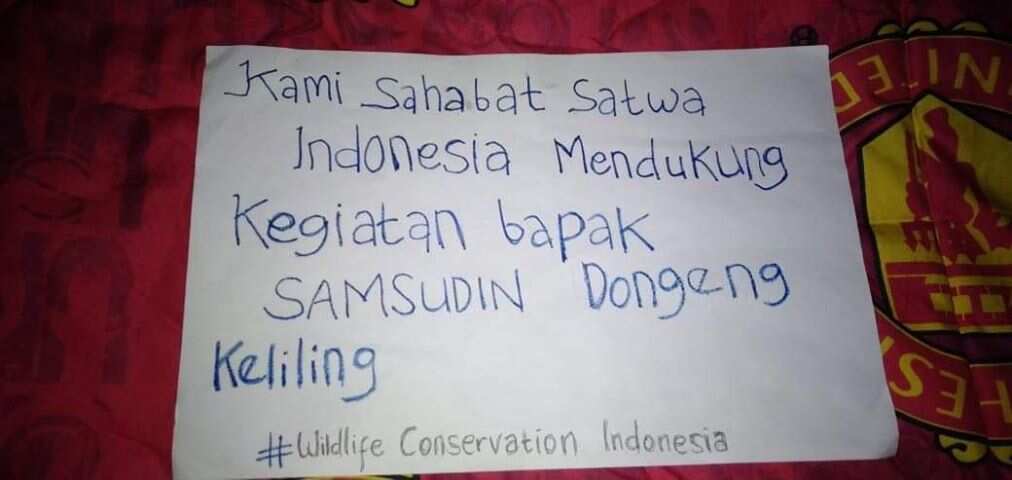 Kami Sahabat Satwa
Indonesia Mendukung
Kegiatan bapak
SAMSUDIN Dongeng
Keliling
#Wildlife Conservation Indonesia